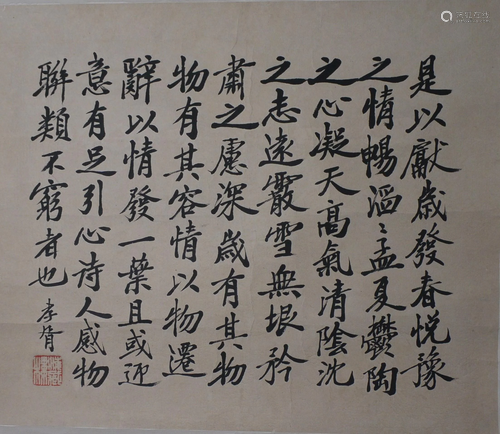 是以獻歲發春悅豫
之情暢滔〻孟夏鬱陶
之心凝天高氣清陰沈
之志遠霰雪無垠矜
肅之慮深歲有其物
物有其容情以物遷
辭以情發一葉且或迎
意有足引心詩人感物
聯類不窮者也 孝胥